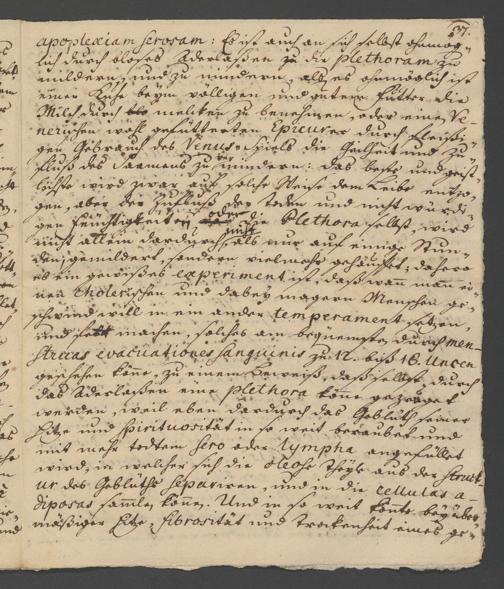 37.
apoplexiam serosam: Es ist auch an sich selbst ohnmög-
lich durch bloses Aderlaßen die plethoram zu
mildern, und zu mindern, als es ohnmöglich ist
einer Kuhe beym völligen und guten Futter die
Milch durch melken zu benehmen, oder einem Ve-
nerischen wohl gefütterten Epicurer durch fleißi-
gen Gebrauch des Venus-Spiels die Geilheit und Zu-
fluß des Saamens zu mindern: das beste und geist-
lichste wird zwar auf solche Weise dem Leibe entzo-
gen, aber der Zufluß der todten und nicht würdi-
gen Feuchtigkeiten oder die Plethora selbst, wird
nicht allein dardurch nicht als nur auf einige Stun-
den gemildert, sondern vielmehr gehäuffet; dahero
es ein gewißes experiment ist, daß wann man ei-
nen Cholerischen und dabey magern Menschen ge-
schwind will in ein ander temperament setzen,
und fett machen, solches am bequemsten durch men-
struas evacuationes sanguinis zu 12. biß 16. Uncen
geschehen könne, zu einem Beweiß, daß selbst durch
das Aderlaßen eine plethora könne gezeuget
werden, weil eben dardurch das Geblüth seiner
Hitze und Spirituosität in so weit beraubet und
mit mehr todtem sero oder lympha angefüllet
wird, in welcher sich die oleose Theyle aus der struct-
ur des Geblüths separiren, und in die cellulas a-
diposas samle könne. Und in so weit könte bey über-
mäßiger Hitze, fibrosität und Trockenheit eines ge-